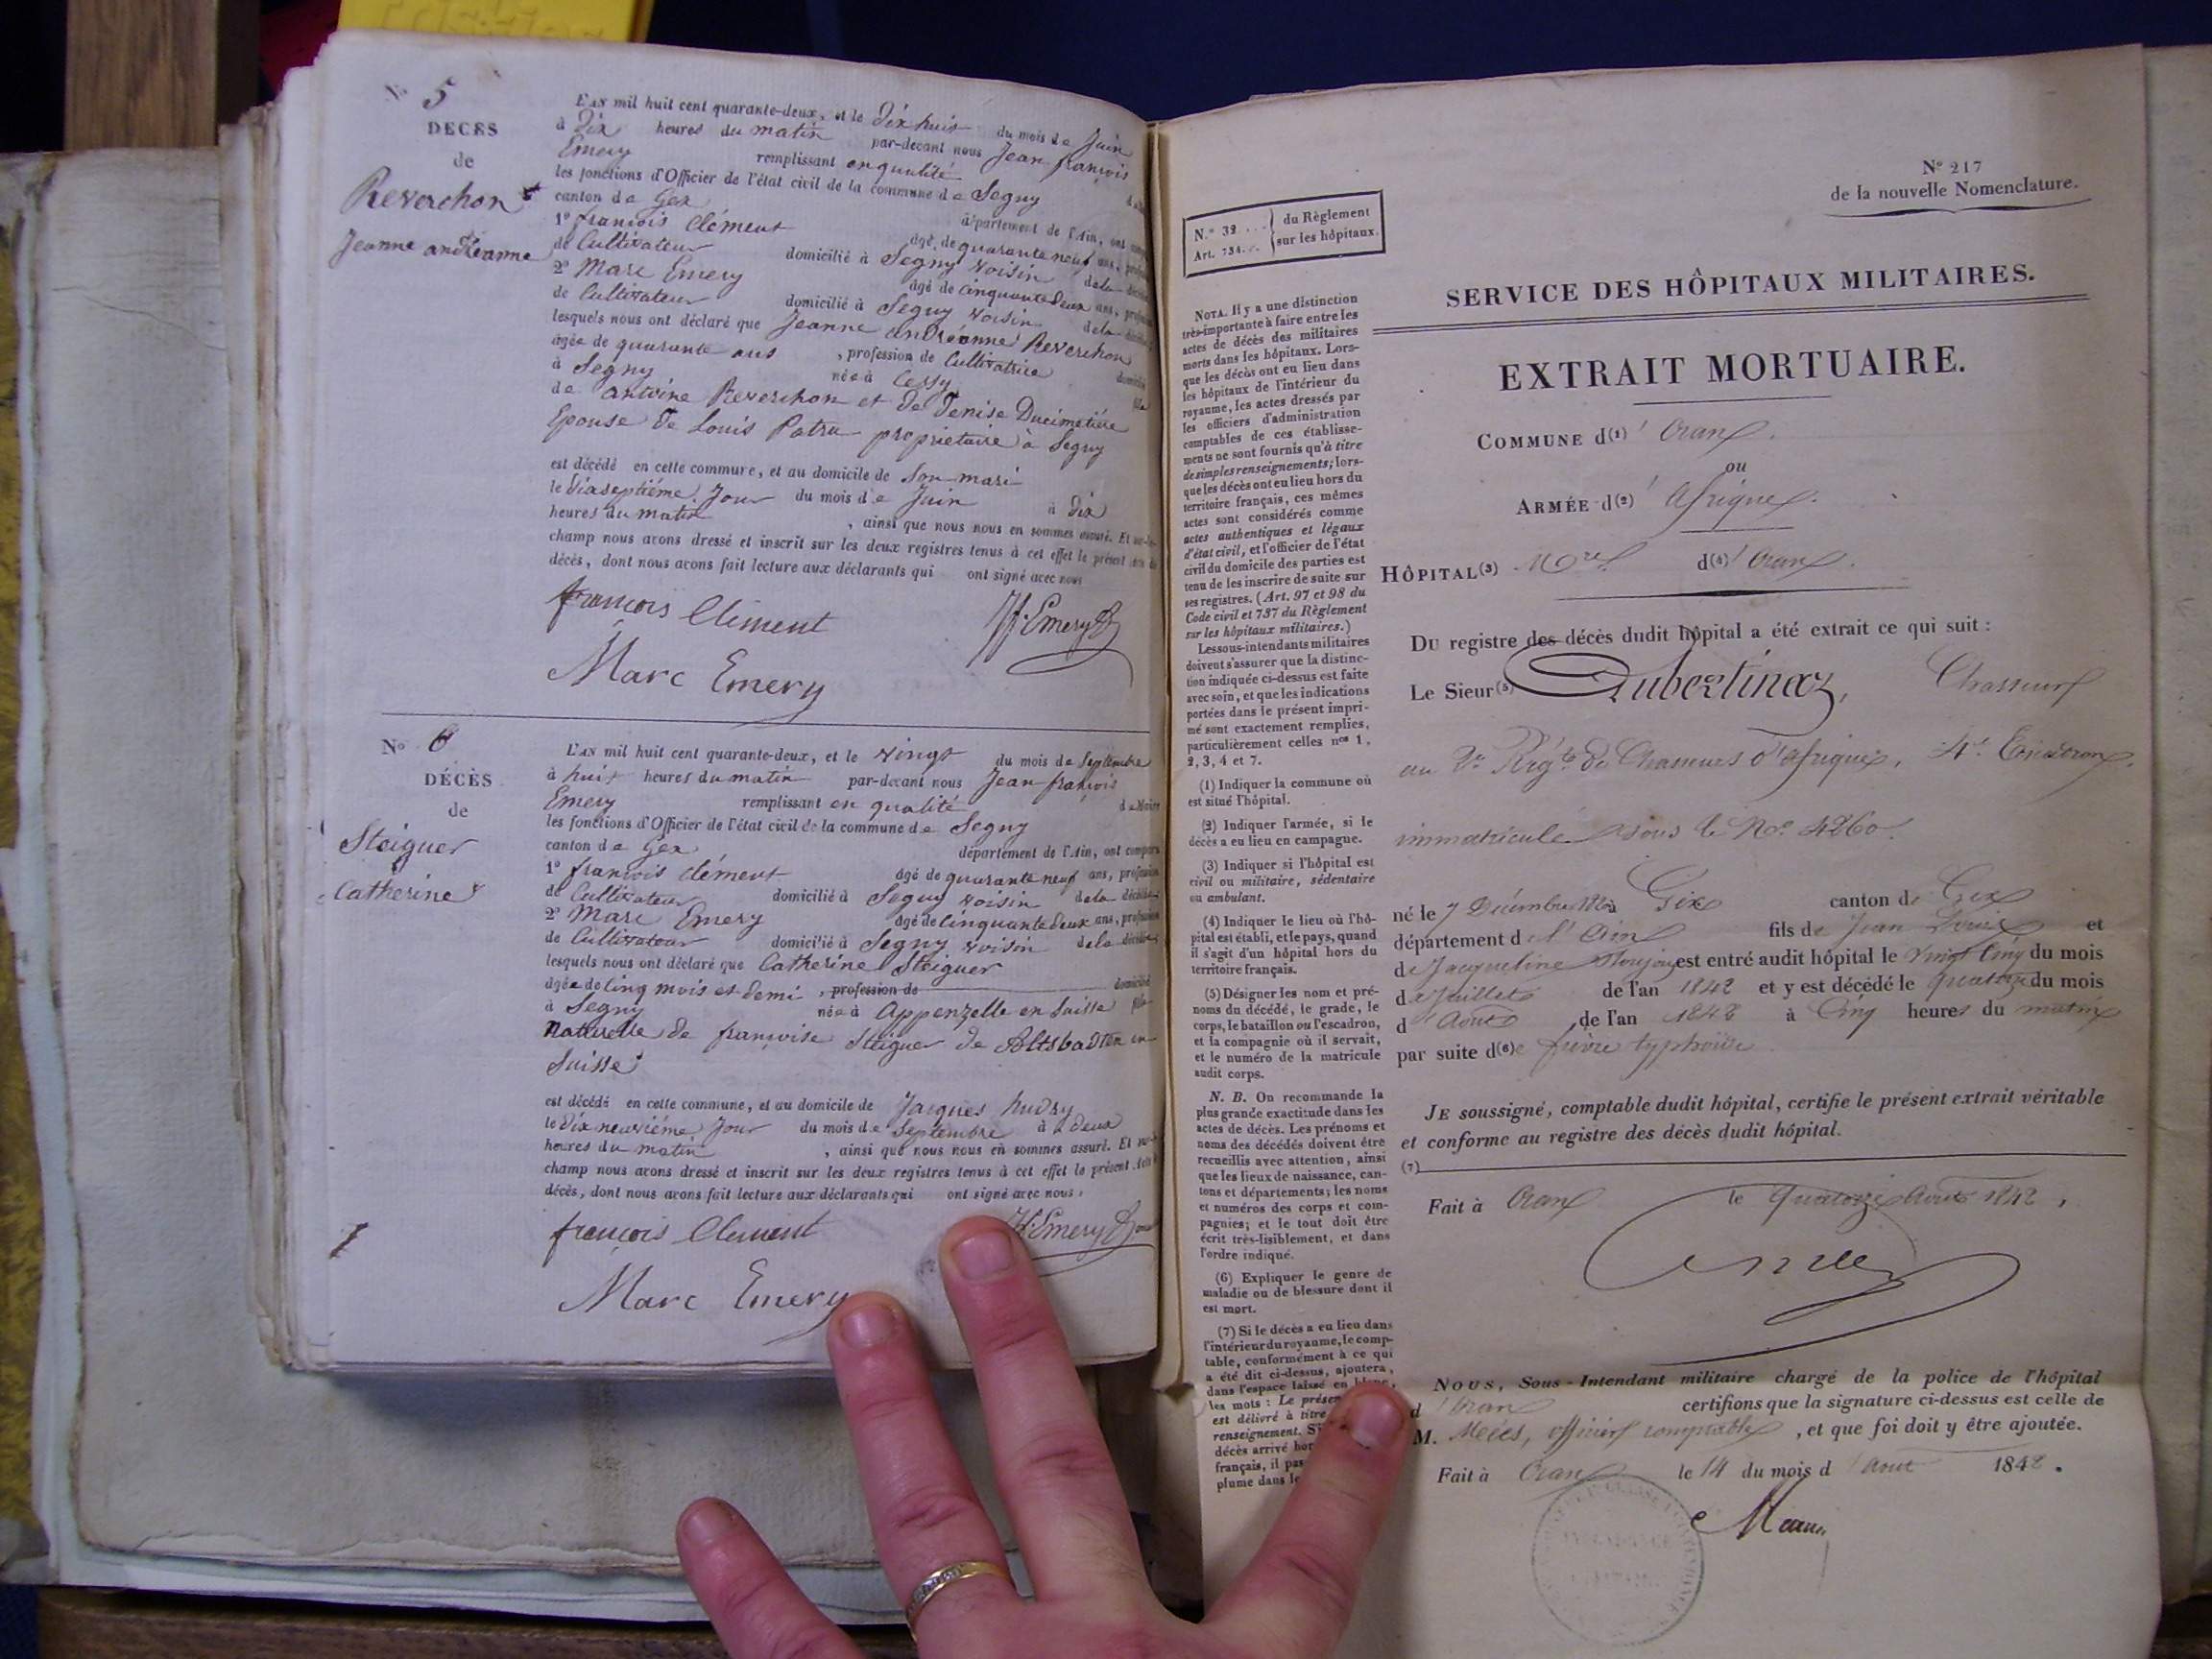 N° 5
DECES
de
Reverchon
Jeanne andréanne
L'AN mil huit cent quarante-deux, et le dix huit du mois de Juin
à dix heures du matin par-devant nous Jean françois
Emery remplissant en qualité
les fonctions d'Officier de l'état civil de la commune de Segny
canton de Gex département de l'Ain, ont
1° françois Clément âgé de quarante neuf ans,
de Cultivateur domicilié à Segny voisin de la
2° Marc Emery âgé de cinquante deux ans,
de Cultivateur domicilié à Segny voisin de la
lesquels nous ont déclaré que Jeanne andréanne Reverchon
âgée de quarante ans , profession de Cultivatrice
à Segny née à Cessy
de antoine Reverchon et de Denise Ducimetière
Epouse de Louis Patru propriétaire à Segny
est décédé en cette commune, et au domicile de Son mari
le dixseptiéme Jour du mois de Juin à dix
heures du matin , ainsi que nous nous en sommes assuré. Et
champ nous avons dressé et inscrit sur les deux registres tenus à cet effet le présent
décès, dont nous avons fait lecture aux déclarants qui ont signé avec nous
françois Clément
Marc Emery
N° 6
DÉCÈS
de
Steiguer
Catherine
L'AN mil huit cent quarante-deux, et le vingt du mois de Septembre
à huit heures du matin par-devant nous Jean françois
Emery remplissant en qualité de Maire
les fonctions d'Officier de l'état civil de la commune de Segny
canton de Gex département de l'Ain, ont
1° françois clément âgé de quarante neuf ans,
de Cultivateur domicilié à Segny voisin de la
2° Marc Emery âgé de Cinquante deux ans,
de Cultivateur domicilié à Segny voisin de la
lesquels nous ont déclaré que Catherine Steiguer
âgée de cinq mois et demi , profession de
à Segny née à Appenzelle en Suisse
naturelle de françoise Steiguer de en
Suisse
est décédé en cette commune, et au domicile de Jacques hudry
le dix neuviéme Jour du mois de Septembre à deux
heures du matin , ainsi que nous nous en sommes assuré. Et
champ nous avons dressé et inscrit sur les deux registres tenus à cet effet le présent
décès, dont nous avons fait lecture aux déclarants qui ont signé avec nous.
françois Clément
Marc Emery
N.° 32 ...
Art. 734...
du Règlement
sur les hôpitaux.
NOTA. Il y a une distinction
très-importante à faire entre les
actes de décès des militaires
morts dans les hôpitaux. Lors-
que les décès ont eu lieu dans
les hôpitaux de l'intérieur du
royaume, les actes dressés par
les officiers d'administration
comptables de ces établisse-
ments ne sont fournis qu'à titre
de simples renseignements; lors-
que les décès ont eu lieu hors du
territoire français, ces mêmes
actes sont considérés comme
actes authentiques et légaux
d'état civil, et l'officier de l'état
civil du domicile des parties est
tenu de les inscrire de suite sur
ses registres. (Art. 97 et 98 du
Code civil et 737 du Règlement
sur les hôpitaux militaires.)
Les sous-intendants militaires
doivent s'assurer que la distinc-
tion indiquée ci-dessus est faite
avec soin, et que les indications
portées dans le présent impri-
mé sont exactement remplies,
particulièrement celles nos 1,
2, 3, 4 et 7.
(1) Indiquer la commune où
est situé l'hôpital.
(2) Indiquer l'armée, si le
décès a eu lieu en campagne.
(3) Indiquer si l'hôpital est
civil ou militaire, sédentaire
ou ambulant.
(4) Indiquer le lieu où l'hô-
pital est établi, et le pays, quand
il s'agit d'un hôpital hors du
territoire français.
(5) Désigner les nom et pré-
noms du décédé, le grade, le
corps, le bataillon ou l'escadron,
et la compagnie où il servait,
et le numéro de la matricule
audit corps.
N. B. On recommande la
plus grande exactitude dans les
actes de décès. Les prénoms et
noms des décédés doivent être
recueillis avec attention, ainsi
que les lieux de naissance, can-
tons et départements; les noms
et numéros des corps et com-
pagnies; et le tout doit être
écrit très-lisiblement, et dans
l'ordre indiqué.
(6) Expliquer le genre de
maladie ou de blessure dont il
est mort.
(7) Si le décès a eu lieu dans
l'intérieur du royaume, le comp-
table, conformément à ce qui
a été dit ci-dessus, ajoutera,
dans l'espace laissé en blanc,
les mots : Le
est délivré à titre
renseignement.
décès arrivé
français, il
plume dans
N° 217
de la nouvelle Nomenclature.
SERVICE DES HÔPITAUX MILITAIRES.
EXTRAIT MORTUAIRE.
COMMUNE d(1)' Oran.
ou
ARMÉE d(2)' Afrique.
HÔPITAL(3) Mre d(4)' Oran.
DU registre des décès dudit hôpital a été extrait ce qui suit :
Le Sieur(5) Dubertinaz, Chasseur
au 2e Régt de Chasseurs d'afrique, 4e Escadron.
immatriculé sous le No. 4260.
né le 7 Décembre à Gex canton de Gex
département de l'Ain fils de Jean Louis et
de Jacqueline est entré audit hôpital le Vingt Cinq du mois
de Juillet de l'an 1842 et y est décédé le quatorze du mois
d'Août de l'an 1842 à Cinq heures du matin
par suite d(6)e fièvre typhoïde
JE soussigné, comptable dudit hôpital, certifie le présent extrait véritable
et conforme au registre des décès dudit hôpital.
(7)
Fait à Oran le quatorze Août 1842,
NOUS, Sous-Intendant militaire chargé de la police de l'hôpital
d'Oran certifions que la signature ci-dessus est celle de
M. officier comptable , et que foi doit y être ajoutée.
Fait à Oran le 14 du mois d'Août 1842.